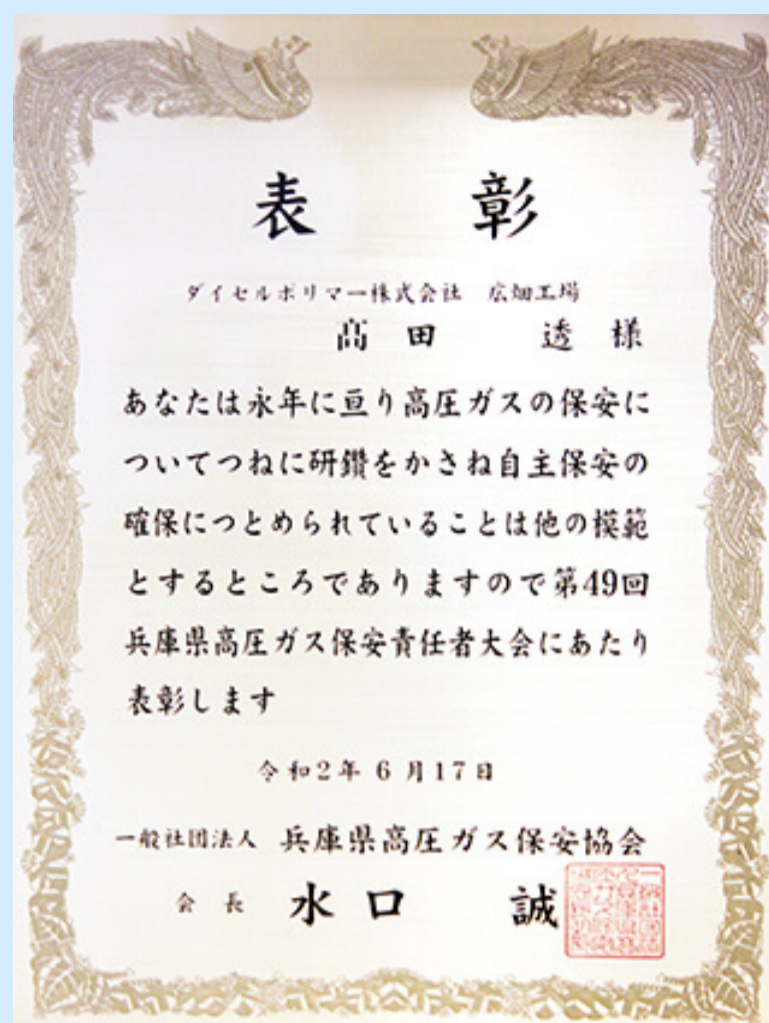 表彰
ダイセルポリマー株式会社 広畑工場
髙田 透様
あなたは永年に亘り高圧ガスの保安に
ついてつねに研鑽をかさね自主保安の
確保につとめられていることは他の模範
とするところでありますので第49回
兵庫県高圧ガス保安責任者大会にあたり
表彰します
令和2年6月17日
一般社団法人 兵庫県高圧ガス保安協会
会長 水口 誠